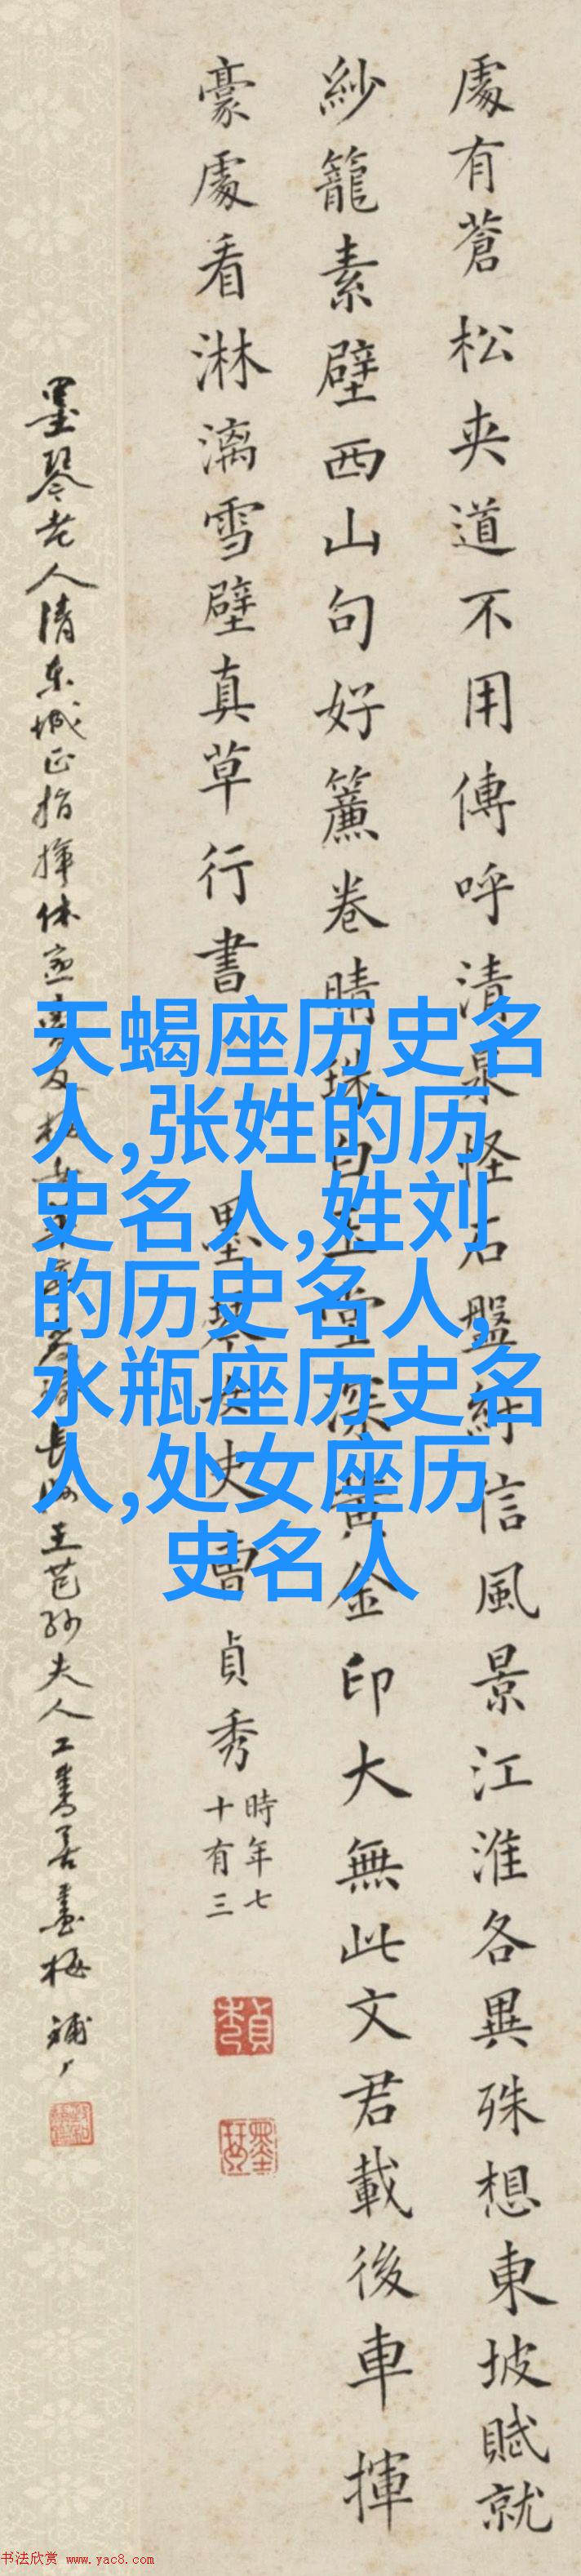 處有蒼松夾道不用傳呼清泉怪石盤紆信風景江淮各異殊想東坡賦就
紗籠素壁西山句好簾卷晴珠白玉堂深黃金印大無此文君載後車揮
豪處看淋漓雪壁真草行書
墨琴女史曹貞秀
時年七
十有三
墨琴老人清東城正指揮
長洲王芑孫夫人工書善畫梅
天蝎座历史名
人,张姓的历
史名人,姓刘
的历史名人,
水瓶座历史名
人,处女座历
史名人
书法欣赏 www.yac8.com